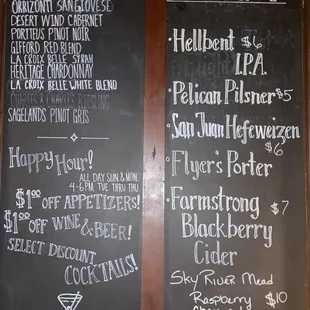 Orbizonti Sangiovese
Desert Wind Cabernet
Porteus Pinot Noir
Gifford Red Blend
La Croix Belle Syrah
Heritage Chardonnay
La Croix Belle White Blend
Riesling
Sagelands Pinot Gris
Happy Hour!
All Day Sun & Mon,
4-6pm Tue thru Thu
$1.00 off Appetizers!
$1.00 off Wine & Beer!
Select Discount
Cocktails!
Hellbent $6
I.P.A.
Pelican Pilsner $5
San Juan Hefeweizen
$6
Flyer's Porter
Farmstrong $7
Blackberry
Cider
Sky River Mead
Raspberry $10